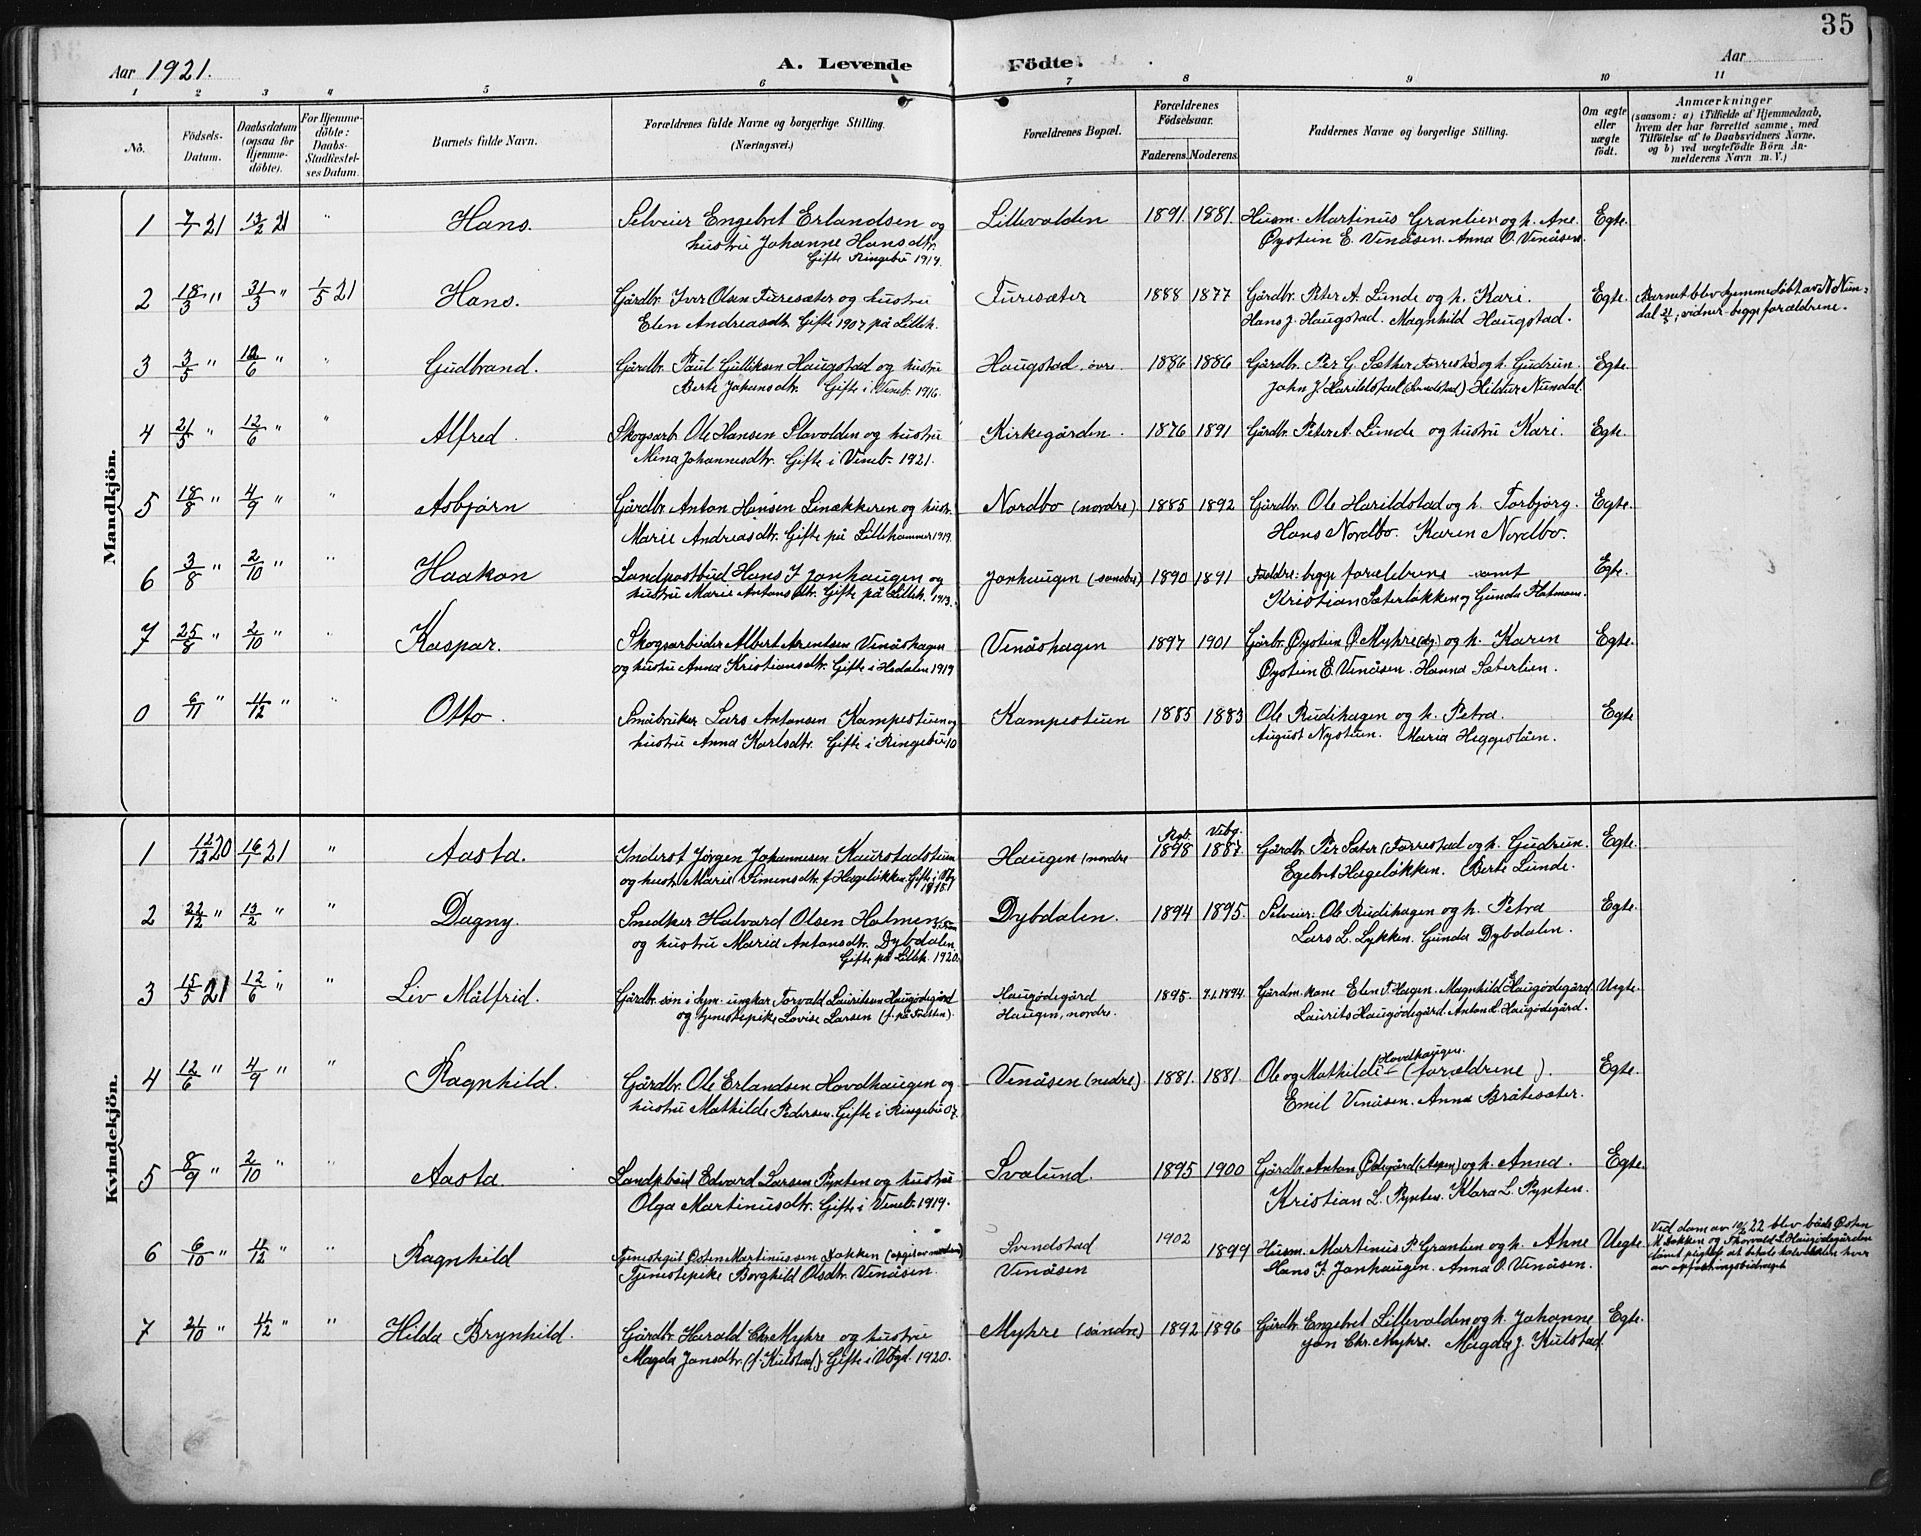 35
Aar 1921.
A. Levende Födte.
Aar
1 2 3 4 5 6 7 8 9 10 11
No.
Födsels-Datum.
Daabsdatum (ogsaa for Hjemmedöbte).
For Hjemmedöbte: Daabs-Stadfæstelses Datum.
Barnets fulde Navn.
Forældrenes fulde Navne og borgerlige Stilling. (Næringsvei.)
Forældrenes Bopæl.
Forældrenes Födselsaar.
Faderens. Moderens.
Faddernes Navne og borgerlige Stilling.
Om ægte eller uægte födt.
Anmærkninger
(saasom: a) i Tilfælde af Hjemmedaab, hvem der har forrettet samme, med Tilföielse af to Daabsvidners Navne, og b) ved uægtefödte Börn Anmelderens Navn m. V.)
Mandkjön.
1 7/1 21 13/2 21 " Hans. Selveier Engebret Erlandsen og Lillevolden 1891. 1881. Husm. Martinus Granlien og h. Ane. Egte.
hustru Johanne Hansdtr. Øystein E. Venåsen. Anna O. Venåsen.
Gifte Ringebu 1914.
2 18/3 " 31/3 " 1/5 21 Hans. Gårdbr. Iver Olsen Turesæter og hustru Turesæter 1888 1877 Gårdbr. Peter A. Lunde og h. Kari. Egte. Barnet blev hjemmedøbt av N. Nun-
Elen Andreasdtr. Gifte 1907 på Lilleh. Hans J. Haugstad. Magnhild Haugstad. dal 21/3, vidner begge forældrene.
3 3/5 " 12/6 " " Gudbrand. Gårdbr. Paul Gulliksen Haugstad og hustru Haugstad, øvre. 1886 1886 Gårdbr. Per G. Sæther Forrestad og h. Gudrun. Egte.
Berte Johansdtr. Gifte i Veneb. 1916. John J. Harildstad (Svendstad) Hildur Nundal.
4 21/5 " 12/6 " " Alfred. Skogsarb. Ole Hansen Slavolden og hustru Kirkegården. 1876 1891 Gårdbr. Peter A. Lunde og hustru Kari. Egte.
Mina Johannesdtr. Gifte i Veneb. 1921.
5 18/8 " 4/9 " " Asbjørn Gårdbr. Anton Hansen Linækkeren og hustr. Nordbo (nordre) 1885 1892 Gårdbr. Ole Harildstad og h. Torbjørg. Egte.
Marie Andreasdtr. Gifte på Lillehammer 1919. Hans Nordbo. Karen Nordbo.
6 3/8 " 2/10 " " Haakon Landpostbud Hans J. Jonhaugen og Jonhaugen (søndre) 1890 1891 Faddre: begge forældrene samt Egte.
hustru Marie Antonsdtr. Gifte på Lilleh. 1913. Kristian Sæterløkken og Gunda Flatmoen.
7 25/8 " 2/10 " " Kaspar. Skogsarbeider Albert Arentsen Venåshagen Venåshagen 1897 1901 Gårbr. Øystein O. Myhre og h. Karen Egte.
og hustru Anna Kristiansdtr. Gifte i Hedalen 1919 Øystein E. Venåsen. Hanna Sæterlien.
0 6/11 " 4/12 " " Otto. Småbruker Lars Antonsen Kampestuen og Kampestuen 1885 1883 Ole Rudihagen og h. Petra. Egte
hustru Anna Karlsdtr. Gifte i Ringebu 10 August Nystuen. Maria Heggeståen.
Kvindekjön.
1 12/12 20 16/1 21 " Aasta. Inderst Jørgen Johannesen Kaurstadstuen Haugen (nordre Rgb. 1898 Vebg. 1887. Gårdbr. Per Sæter (Forrestad og h. Gudrun. Egte.
og hustr. Marie Simensdtr. f. Hageløkken. Gifte i Vby 1918. Egebret Hageløkken. Berte Lunde.
2 22/12 " 13/2 " " Dagny. Snedker Halvard Olsen Holmen og hustru Dybdalen. 1894 1895. Selveier: Ole Rudihagen og h. Petra Egte.
og hustru Maria Antonsdtr. Dybdalen. Lars L. Lykken. Gunda Dybdalen.
Gifte på Lilleh. 1920.
3 15/5 21 12/6 " " Liv Målfrid. Gårdbr. søn i hjm. ungkar Torvald Lauritsen Haugødegård Haugødegård 1895. 7.1.1894. Gårdm. kone Elen T. Hagen. Magnhild Haugødegård Uegte.
og tjenestepike Lovise Larsen (f. på Fresten). Haugen, nordre. Laurits Haugødegård. Anton L. Haugødegård.
4 12/6 " 4/9 " " Ragnhild. Gårdbr. Ole Erlandsen Hovdhaugen og Venåsen (nedre) 1881. 1881. Ole og Mathilde Hovdhaugen (forældrene). Egte.
hustru Mathilde Pedersen. Gifte i Ringebu 07. Emil Venåsen. Anna Bråtesæter.
5 8/9 " 2/10 " " Aasta. Landpbud Edvard Larsen Rynten og hustru Svalund. 1895 1900 Gårdbr. Anton Ødegård (Aspen) og h. Anna. Egte.
Olga Martinusdtr. Gifte i Veneb. 1919. Kristian L. Rynten. Klara L. Rynten.
6 6/10 " 4/12 " " Ragnhild Tjenestegut Østen Martinussen Dokken (opgit av moderen) Svendstad 1902 1899 Husm. Martinus P. Granlien og h. Ahne Uegte. Ved dom av 10/5 22 blev både Østen
Tjenestepike Borghild Olsdtr. Venåsen. Venåsen Hans J. Jonhaugen. Anna O. Venåsen. M. Dokken og Thorvald L. Haugødegården dømt pligtig at betale halvdelen hver av opfostringsbidraget
7 21/10 " 4/12 " " Hilda Brynhild. Gårdbr. Harald Chr. Myhre og hustru Myhre (søndre) 1892 1896 Gårdbr. Engebret Lillevolden og h. Johanne Egte.
Magda Jonsdtr. (f. Kulstad) Gifte i Vbgd. 1920. Jon Chr. Myhre. Magda J. Kulstad